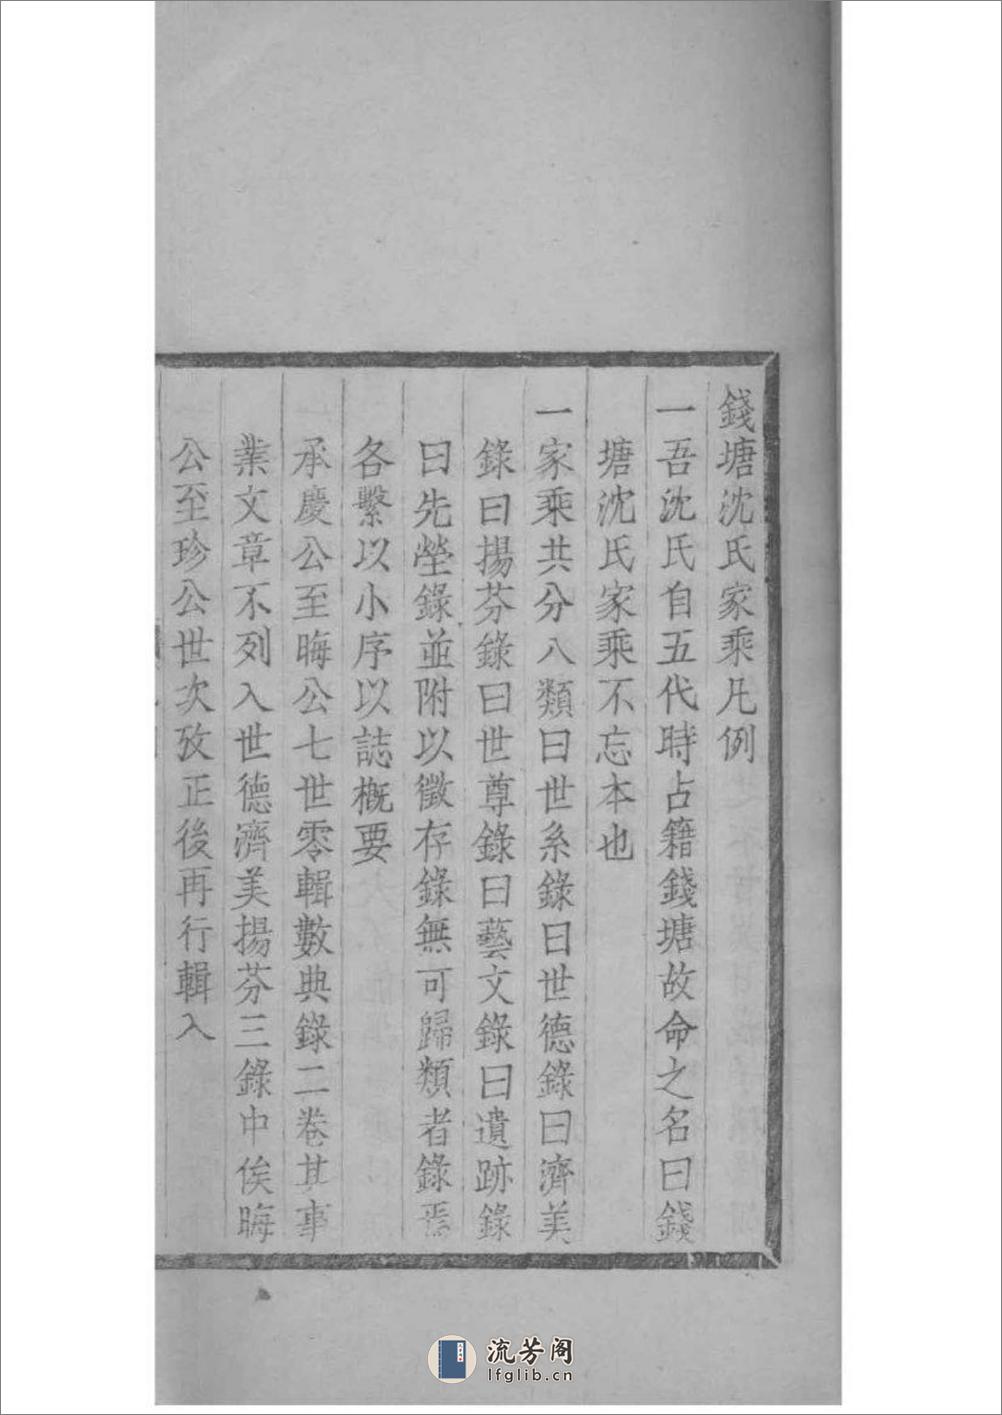 錢塘沈氏家乘凡例
一吾沈氏自五代時占籍錢塘故命之名曰錢
塘沈氏家乘不忘本也
一家乘共分八類曰世系錄曰世德錄曰濟美
錄曰揚芬錄曰世尊錄曰藝文錄曰遺跡錄
曰先塋錄並附以徵存錄無可歸類者錄焉
各繫以小序以誌概要
承慶公至晦公七世零輯數典錄二卷其事
業文章不列入世德濟美揚芬三錄中俟晦
公至珍公世次攷正後再行輯入
流芳阁
lfglib.cn